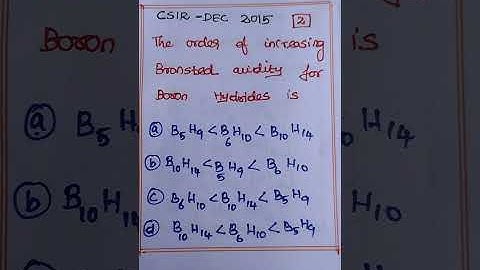 CSIR - DEC 2015 [2]
The order of increasing
Bronsted acidity for
Boron Hydrides is
(a) B5H9 < B6H10 < B10H14
(b) B10H14 < B5H9 < B6H10
(c) B6H10 < B10H14 < B5H9
(d) B10H14 < B6H10 < B5H9